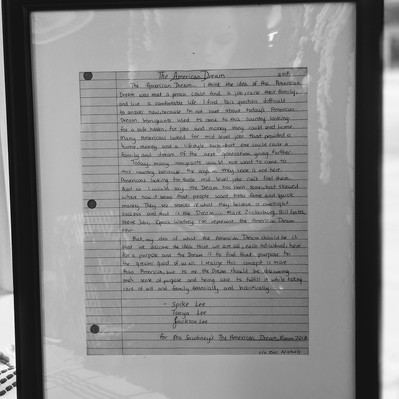 The American Dream
The American Dream... I think the idea of the American
Dream was that a person could find a job, raise their family,
and live a comfortable life. I find this question difficult
to answer now, because I'm not sure about today's American
Dream. Immigrants used to come to this country looking
for a safe haven, for jobs and money they could send home.
Many Americans looked for mid level jobs that provided a
home, money and a lifestyle such that one could raise a
family and dream of the next generation going further.
Today, many immigrants would not want to come to
this country because the they is not here
Americans looking for those mid level jobs can't find them.
And so I would say the Dream has been somewhat skewed
where now it seems that people want instant fame and quick
money. They see stories of what they believe is overnight
success and that is the Dream... Mark Zuckerberg, Bill Gates,
Steve Jobs, Oprah Winfrey can represent the American Dream
But, my idea of what the American Dream should be is
that we discover the idea that we are all, each individual, here
for a purpose and the Dream is to find that purpose to
the greater good of us all. I realize this concept is more
than American, but to me the Dream should be discovering
one's sense of purpose and being able to fulfill it while taking
care of self and family financially and
- Spike Lee
Tonya Lee
Jackson Lee
For The American Dream,